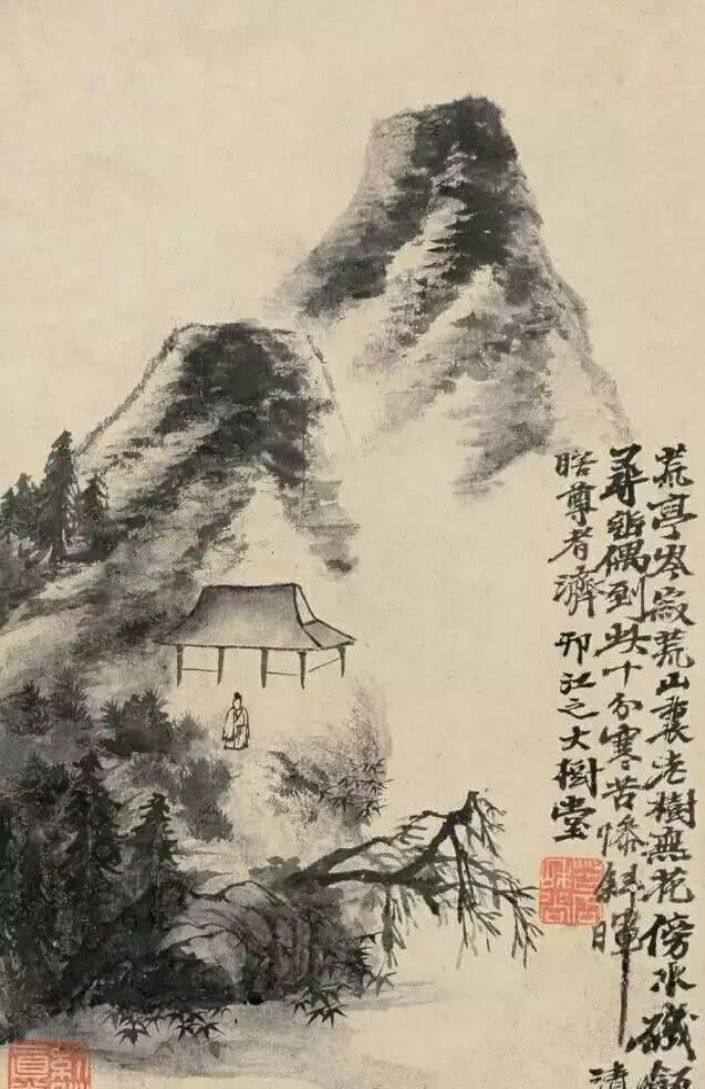 荒亭岑寂荒山裏老樹無花傍水磯
尋偶到此十分寒苦慘斜暉 清
瞎尊者濟 邗江之大樹堂